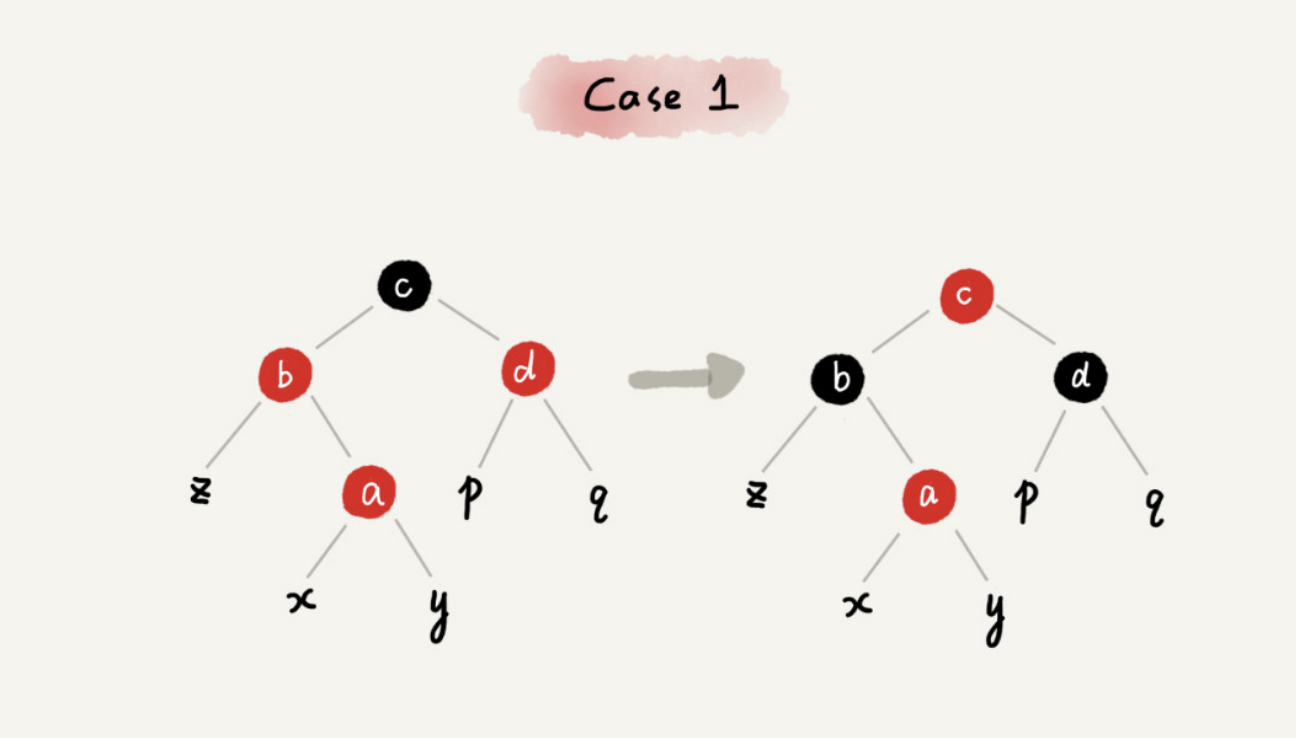 Case 1
c
b
d
z
a
p
q
x
y
c
b
d
z
a
p
q
x
y